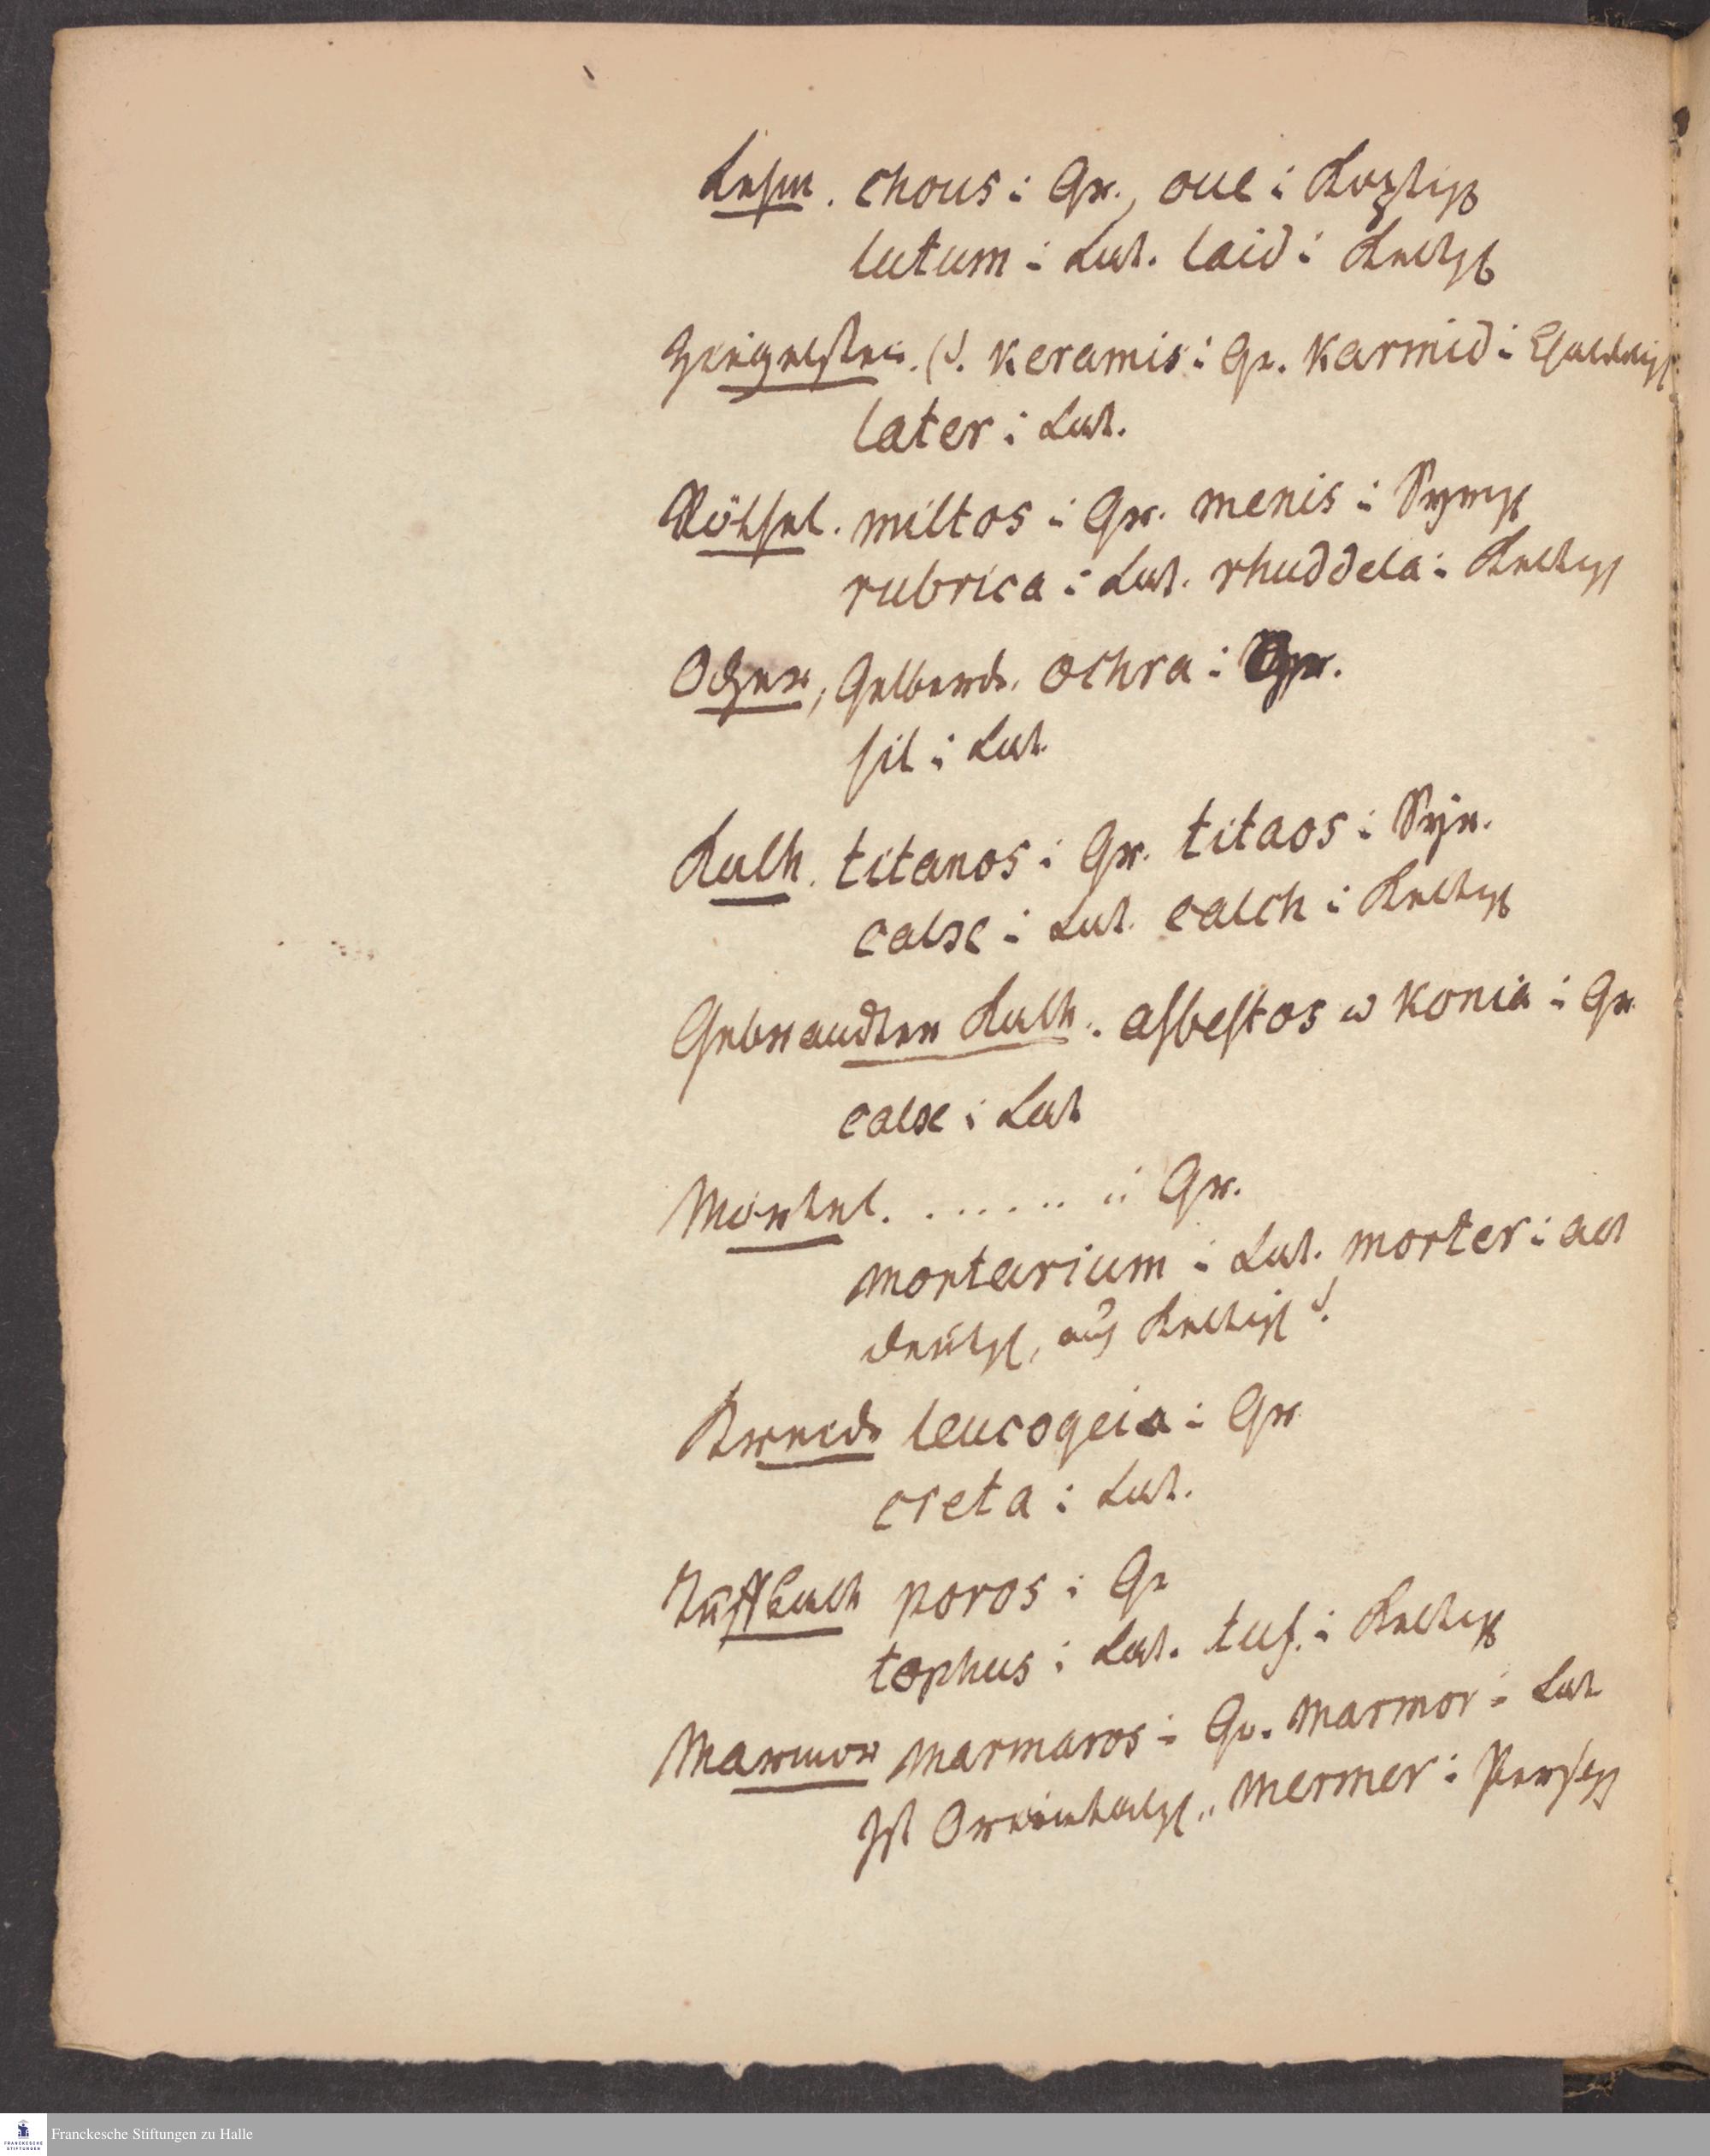 Lehm. chous i Gr., oue i Koptisch
lutum i Lat. laid i Keltisch
Ziegelstein. (d. keramis i Gr. karmid i Chaldäisch
later i Lat.
Röthel. miltos i Gr. menis i Syrisch
rubrica i Lat. rhuddela i Keltisch
Ocher, Gelberde. ochra i Gr.
sil i Lat.
Kalk. titanos i Gr. titaos i Syr.
calx i Lat. calch i Keltisch
Gebrandter Kalk. asbestos ω konia i Gr.
calx i Lat
Mörtel. ....... ii Gr.
mortarium i Lat. morter i alt
deutsch, auch Keltisch
Kreide leucogeia i Gr
creta i Lat.
Tuffkalk poros i Gr
tophus i Lat. tuf. i Keltisch
Marmor marmaros i Gr. marmor i Lat
Ist Orientalisch, mermer i Persisch
Franckesche Stiftungen zu Halle
FRANCKESCHE
STIFTUNGEN